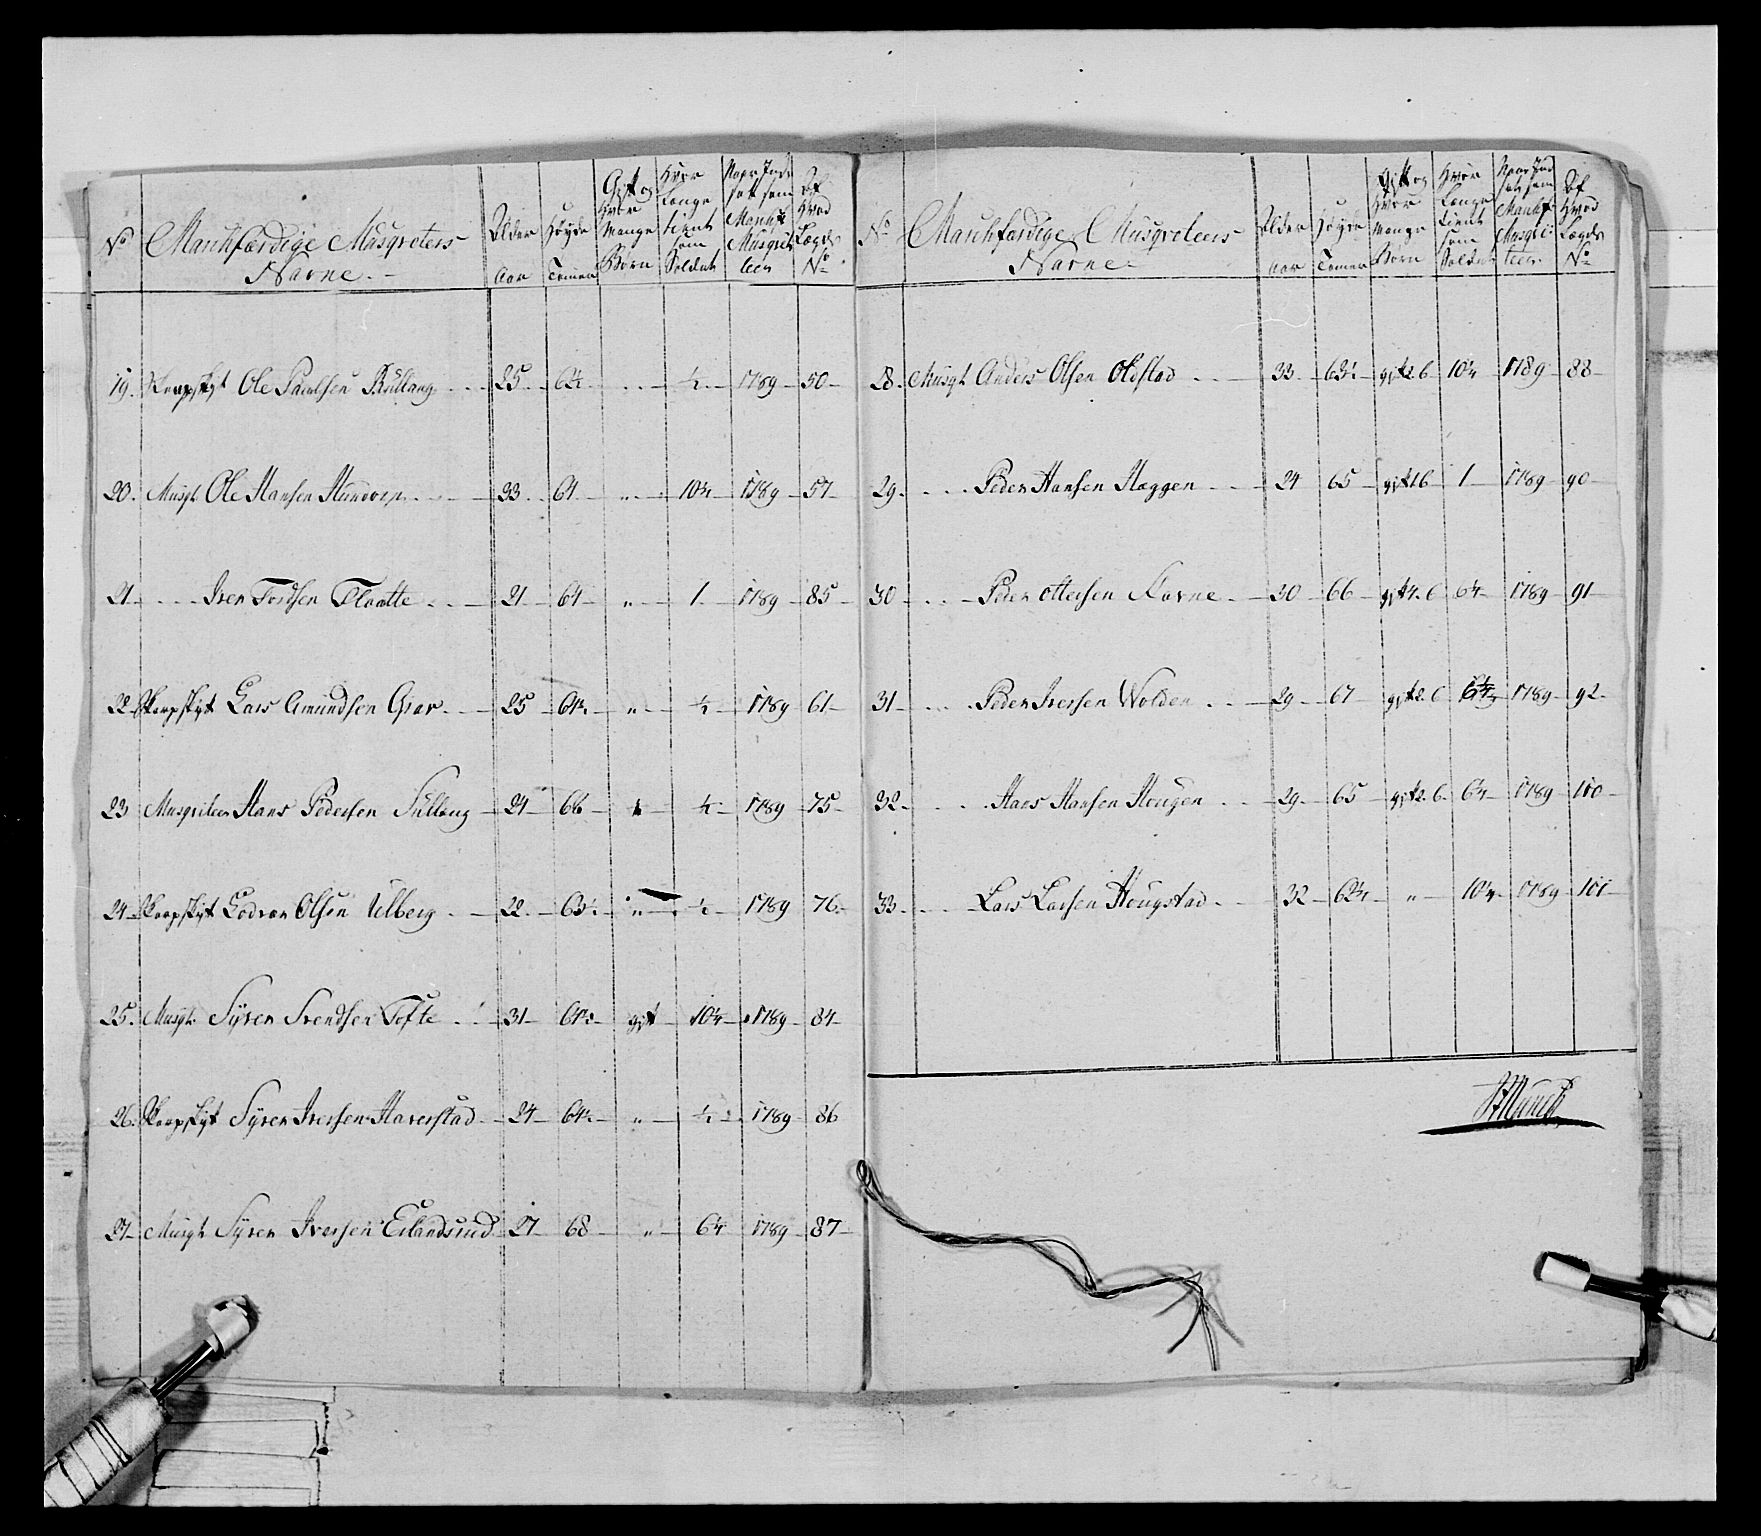 No Marchfærdige Musqveters Navne. Alder Aar Høyde Tommer Gift og Hvor Mange Børn Hvor Længe tient som Soldat Naar Indsat som Marchf: Musqvetteer Af Hvad Lægds No
19. Skarpskyt Ole Paulsen 25 1/2 1789 50
20. Musqt Ole Hansen Hundorp 33 64 " 10 1/4 1789 57
21 Iver Tordsen Flaatte 21 64 " 1 1789 85
22 Skarpskyt Lars Amundsen Grav 25 " 1/2 1789 61
23 Musqveteer Hans Pedersen 24 66 1/2 1789 75
24 Skarpskyt Olsen Ulberg 22 " 1/2 1789 76
25. Musqt. Syver Svendsen Tofte 31 gift 10 1/4 1789 84
26. Skarpskyt Syver Iversen Haverstad 24 " 1/2 1789 86
27 Musqt Syver Iversen Erlandsrud 27 68 " 6 1/4 1789 87
No Marchfærdige Musqveteers Navne Alder Aar Høyde Tommer Gift og Hvor Mange Børn Hvor Længe tient som Soldat Naar Indsat som Marchf: Musqvetteer Af Hvad Lægds No
28. Musqt Anders Olsen Oldstad 33 gift 2 b 10 1/4 1789 88
29. Peder Hansen Haggen 24 65 gift 1 b 1 1789 90
30 Peder Ottersen 30 66 gift 4 b 6 1/4 1789 91
31 Peder Iversen Wolden 29 67 gift 2 b 1789 92
32. Hans Hansen Hougen 29 65 gift 2 b 6 1/4 1789 100
33. Lars Larsen Hougstad 32 " 10 1/4 1789 101
Munch